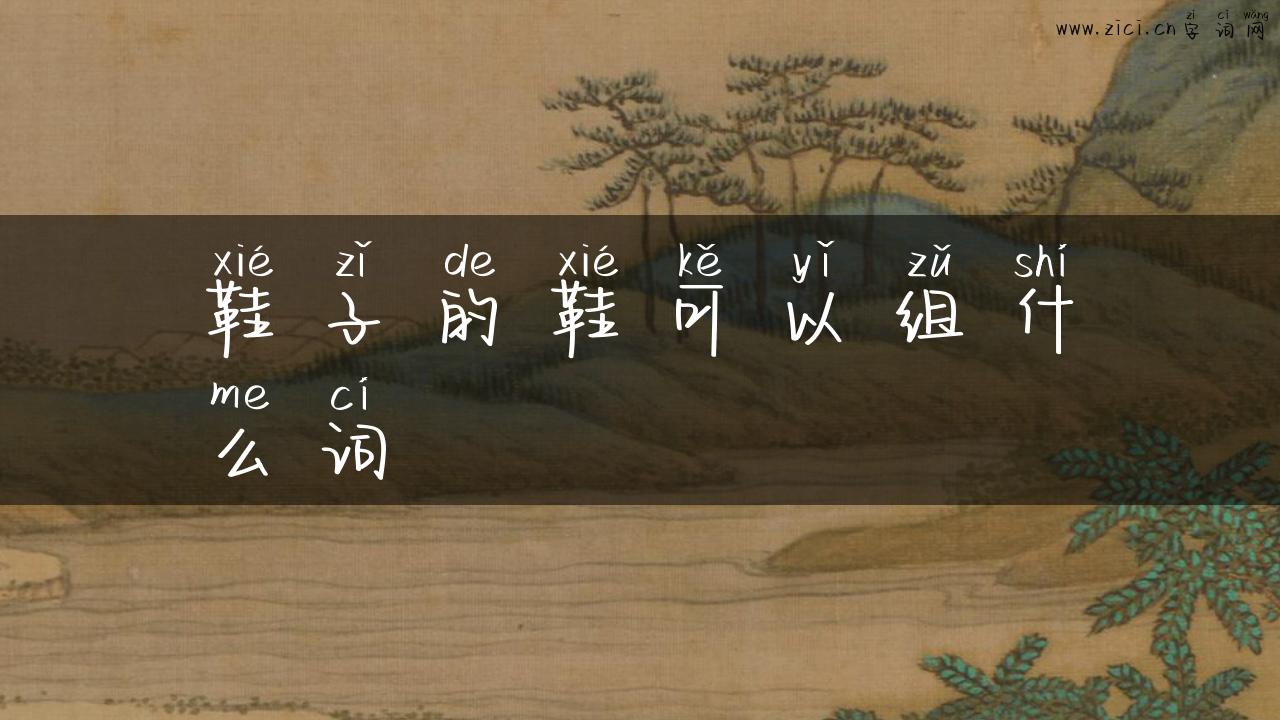 zì cí wǎng
www.zici.cn 字词网
xié zǐ de xié kě yǐ zǔ shí
鞋子的鞋可以组什
me cí
么词